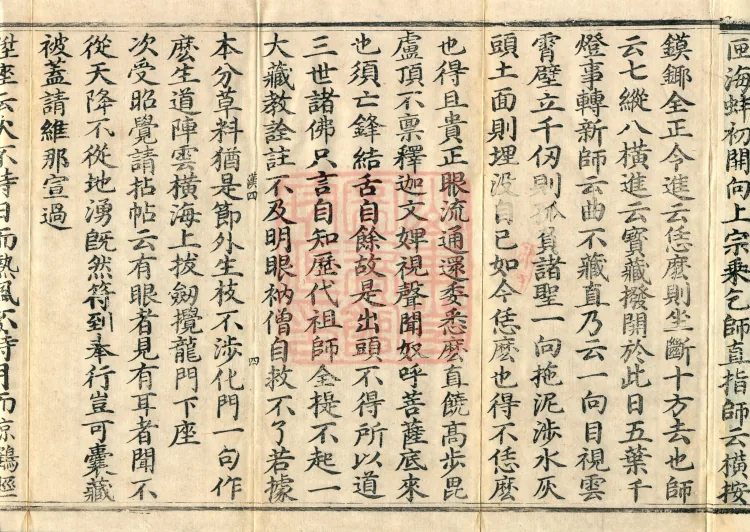 匣海蚌初開向上宗乘乞師直指師云橫按
鏌鎁全正令進云恁麼則坐斷十方去也師
云七縱八橫進云寶藏撥開於此日五葉千
燈事轉新師云曲不藏直乃云一向目視雲
霄壁立千仞則孤負諸聖一向拖泥涉水灰
頭土面則埋没自己如今恁麼也得不恁麼
也得且貴正眼流通還委悉麼直饒高步毘
盧頂不禀釋迦文婢視聲聞奴呼菩薩底來
也須亡鋒結舌自餘故是出頭不得所以道
三世諸佛只言自知歷代祖師全提不起一
大藏教詮註不及明眼衲僧自救不了若據
漢四
四
本分草料猶是節外生枝不涉化門一句作
麽生道陣雲橫海上拔劔攪龍門下座
次受昭覺請拈帖云有眼者見有耳者聞不
從天降不從地湧旣然符到奉行豈可囊藏
被蓋請維那宣過
陞座云火不待日而熱風不待月而凉鶴脛